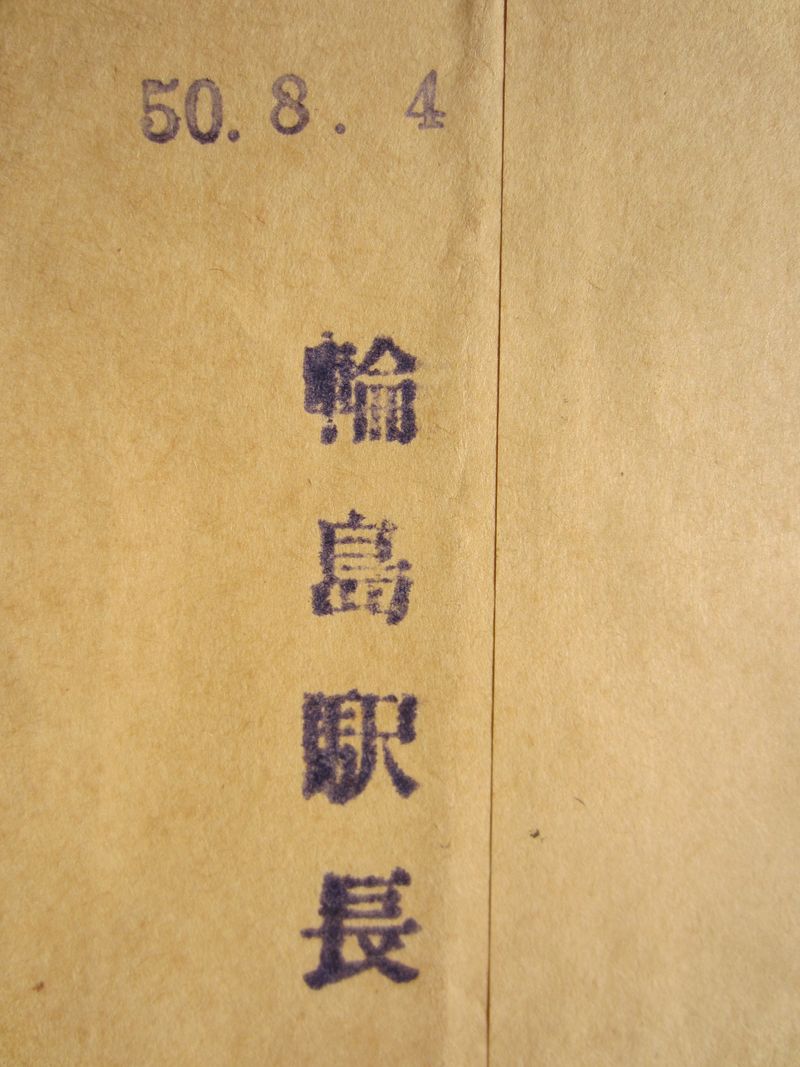 50.8.4
輪島駅長